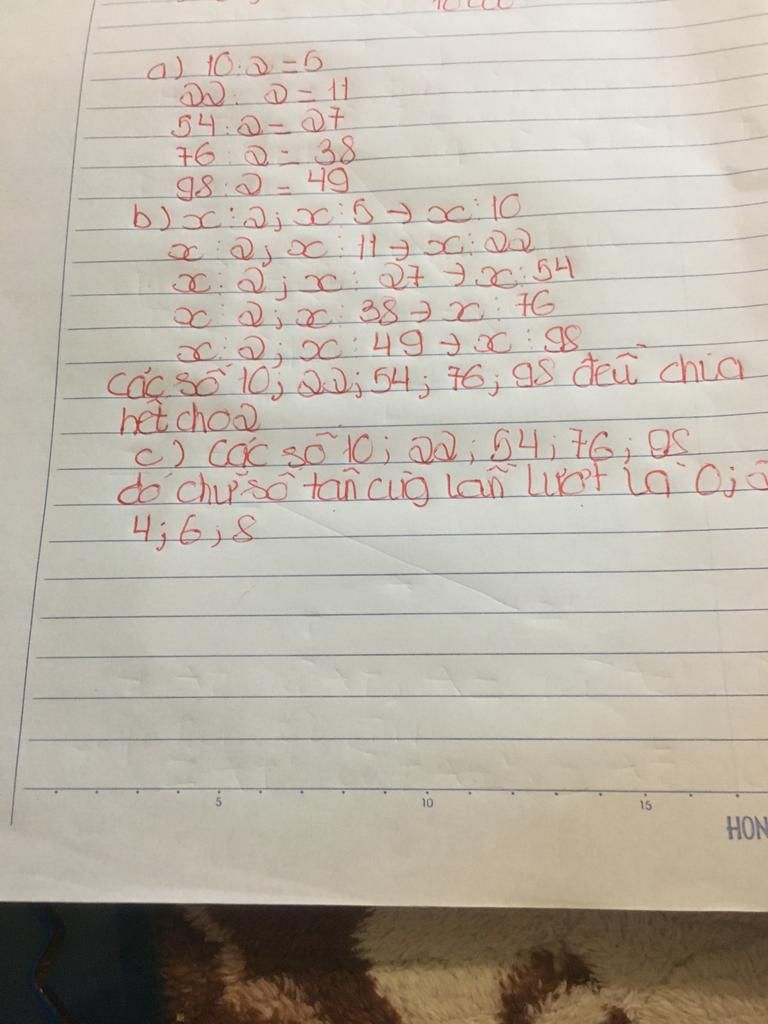 a) 10:2=5
22:2=11
54:2=27
76:2=38
98:2=49
b) x:2; x:5→x:10
x:2; x:11→x:22
x:2; x:27→x:54
x:2; x:38→x:76
x:2; x:49→x:98
các số 10; 22; 54; 76; 98 đều chia
hết cho 2
c) các số 10; 22; 54; 76; 98
dó chữ số tân cùg lần lượt là 0;
4; 6; 8
5 10 15
HON